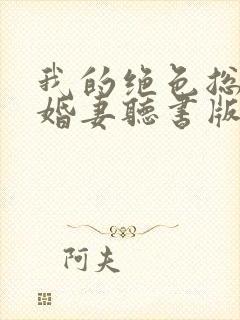 我的绝色总
婚妻聽書版
阿夫